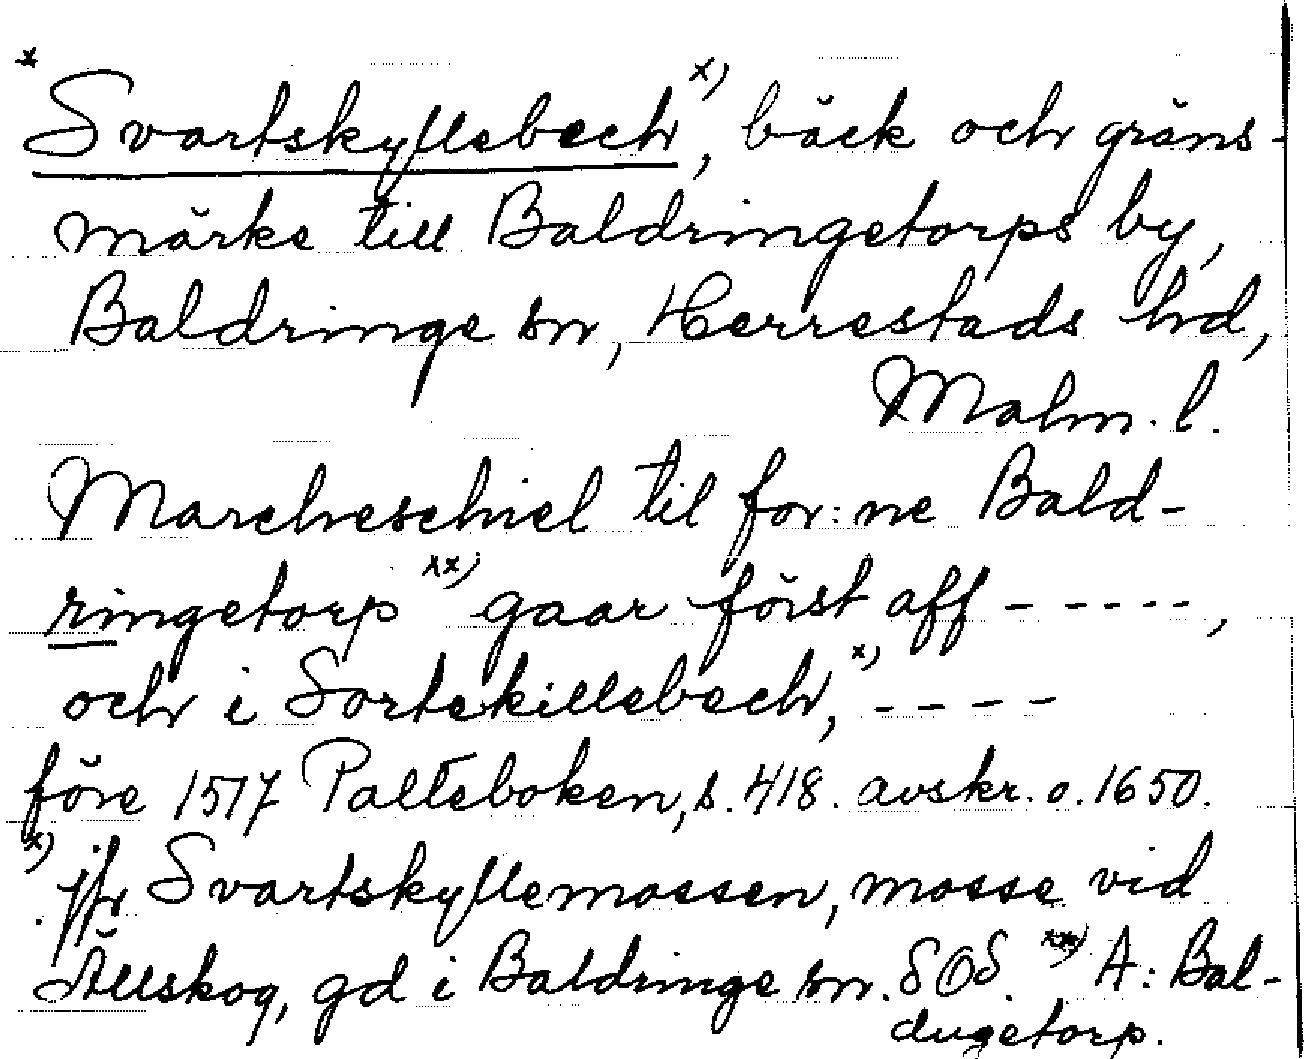 * Svartskyllebech x), bäck och gräns-
märke till Baldringetorps by,
Baldringe sn, Herrestads hd,
Malm. l.
Marcheschiel til for:ne Bald-
ringetorp xx) gaar först aff - - - - -,
och i Sortekillebech, x) - - - -
före 1517 Palteboken, s. 418. avskr. o. 1650.
x) jfr Svartskyllemossen, mosse vid
Ällskog, gd i Baldringe sn. SOS. xx) A: Bal-
dugetorp.